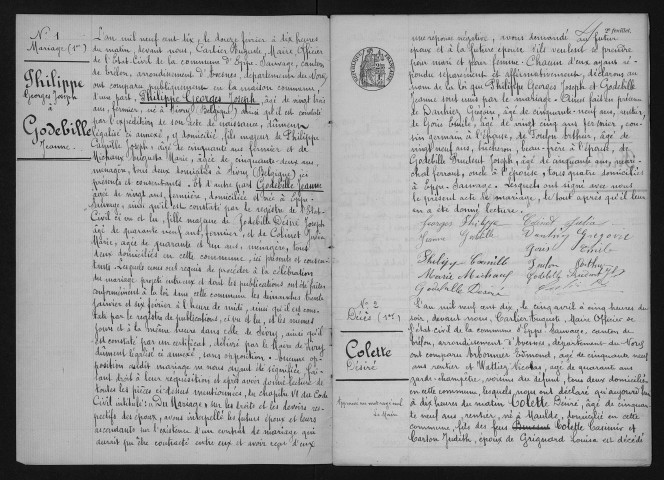 N° 1
Mariage (1er)
Philippe
Georges Joseph
à
Godebille
Jeanne
L'an mil neuf cent dix, le douze février à dix heures
du matin, devant nous, Cartier Auguste, Maire, Officier
de l'Etat Civil de la commune d'Eppe-Sauvage, canton
de Trélon, arrondissement d'Avesnes, département du Nord,
ont comparu publiquement en la maison commune,
d'une part Philippe Georges Joseph, âgé de vingt trois
ans, fermier, né à Sivry (Belgique) ainsi qu'il est constaté
par l'expédition de son acte de naissance, dûment
légalisé ci annexé, y domicilié, fils majeur de Philippe
Camille Joseph, âgé de cinquante ans, fermier et de
Augusta Marie, âgée de cinquante deux ans,
ménagère, tous deux domiciliés à Sivry (Belgique), ici
présents et consentants. Et d'autre part Godebille Jeanne
âgée de vingt ans, fermière, domiciliée et née à Eppe-
Sauvage, ainsi qu'il est constaté par le registre de l'Etat-
Civil de ce lieu, fille mineure de Godebille Désiré Joseph
âgé de quarante neuf ans, fermier, et de Colinet
Marie, âgée de quarante et un ans, ménagère, tous
deux domiciliés en cette commune, ici présents et consen-
tants. Lesquels nous ont requis de procéder à la célébration
du mariage projeté entre eux et dont les publications ont été faites
conformément à la loi dans cette commune les dimanches trente
janvier et six février à l'heure de midi, ainsi qu'il est cons-
taté par le registre de publications, ici vu et lu, et les mêmes
jours et à la même heure dans celle de Sivry, ainsi qu'il
est constaté par un certificat, délivré par le Maire de Sivry
dûment légalisé ci annexé, sans opposition. Aucune op-
position audit mariage ne nous ayant été signifiée, fai-
sant droit à leur réquisition et après avoir donné lecture de
toutes les pièces ci-dessus mentionnées, du chapitre VI du Code
Civil intitulé: « Du Mariage » sur les droits et les devoirs respec-
tifs des époux, avons interpellé les futurs époux et leurs
ascendants sur l'existence d'un contrat de mariage qui
aurait pu être contracté entre eux et avoir reçu d'eux
2e feuillet.
une réponse négative, avons demandé au futur
époux et à la future épouse s'ils veulent se prendre
pour mari et pour femme. Chacun d'eux ayant ré-
pondu séparément et affirmativement, déclarons au
nom de la loi que Philippe Georges Joseph et Godebille
Jeanne sont unis par le mariage. Ainsi fait en présence
de Damien, âgé de cinquante-neuf ans, rentier,
de Emile, âgé de vingt cinq ans, fermier, cou-
sin germain à l'épouse, de Arthur, âgé de vingt
neuf ans, bûcheron, beau-frère à l'époux, de
Godebille Prudent Joseph, âgé de cinquante ans, maré-
chal ferrant, oncle à l'épouse, tous quatre domiciliés
à Eppe-Sauvage. Lesquels ont signé avec nous
le présent acte de mariage, le tout après qu'il leur
en a été donné lecture.
Georges Philippe
Jeanne
Philippe Camille
Marie
Godebille Désiré
Colinet
Emile
Godebille Prudent
N° 2
Décès (1er)
Colette
Désiré
L'an mil neuf cent dix, le cinq avril à cinq heures du
soir, devant nous, Cartier Auguste, Maire Officier de
l'Etat civil de la commune d'Eppe-Sauvage, canton de
Trélon, arrondissement d'Avesnes, département du Nord
ont comparu Edmond, âgé de cinquante neuf
ans, rentier et Wattiez Nicolas, âgé de quarante ans
garde-champêtre, voisins du défunt, tous deux domiciliés
en cette commune, lesquels nous ont déclaré qu'aujourd'hui
à dix heures du matin Colette Désiré, âgé de cinquan-
te neuf ans, rentier, né à domicilié en cette
commune, fils des feus Colette Casimir et
Carton Judith, époux de Grignard Louisa est décédé